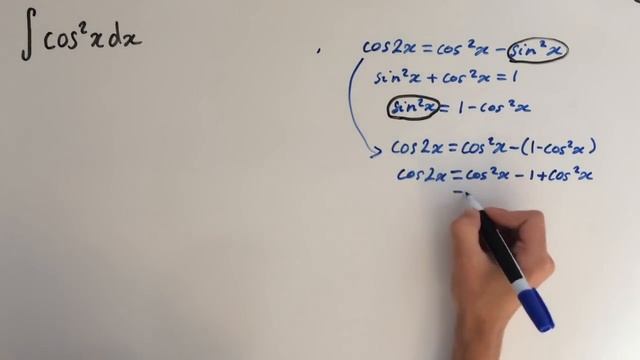 ∫cos²x dx
cos2x = cos²x - sin²x
sin²x + cos²x = 1
sin²x = 1 - cos²x
cos2x = cos²x - (1-cos²x)
cos2x = cos²x - 1 + cos²x
=